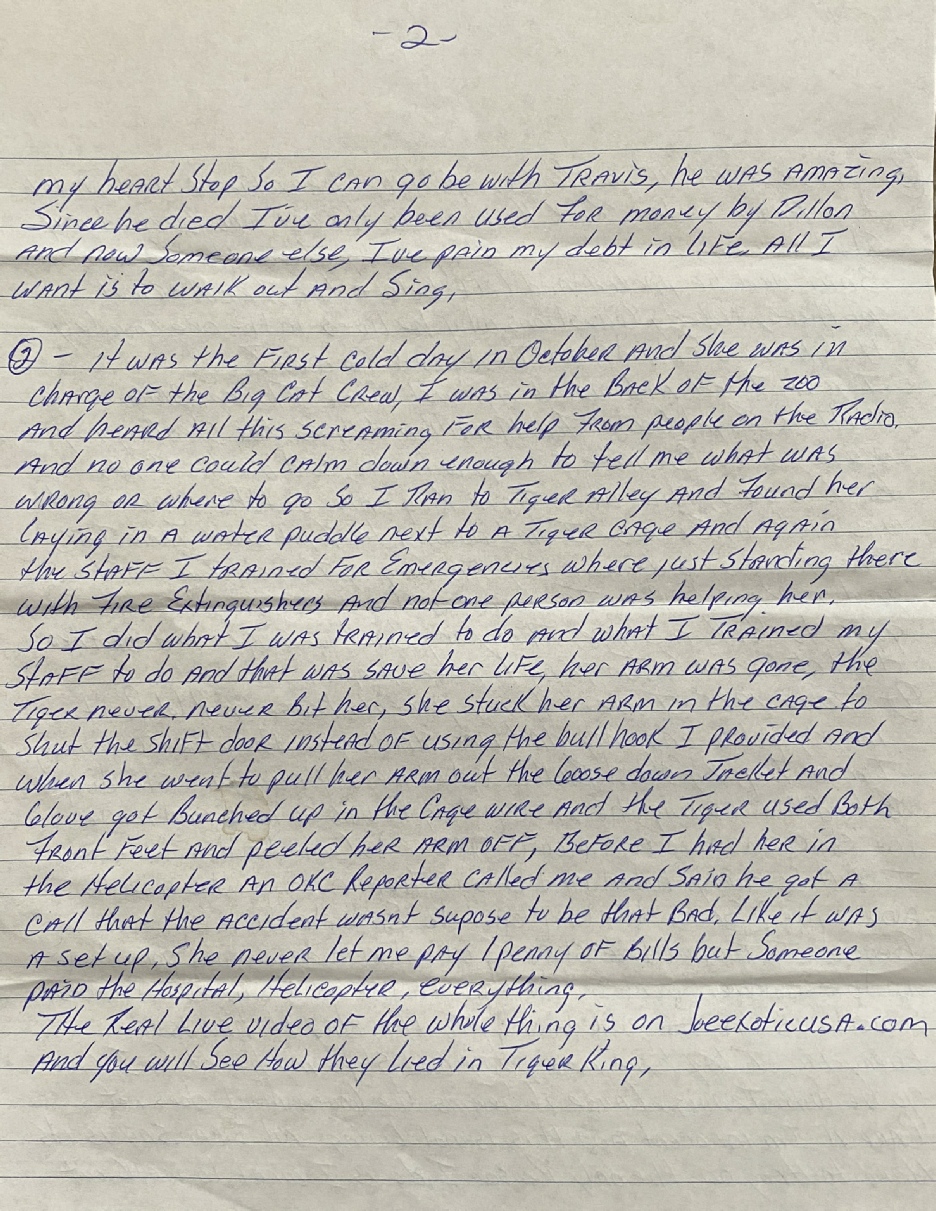 -2-
my heart Stop So I can go be with Travis, he was Amazing,
Since he died I've only been used for money by Dillon
And now Someone else, I've pain my debt in life. All I
want is to walk out And Sing,
② - it was the First cold day in October And She was in
charge of the Big Cat Crew, I was in the Back of the zoo
And heard All this screaming For help from people on the Radio.
And no one could calm down enough to tell me what was
wrong or where to go So I Ran to Tiger Alley And found her
laying in A water puddle next to A Tiger cage And Again
the Staff I trained For Emergencies where just Standing there
with Fire Extinguishers And not one person was helping her.
So I did what I was trained to do And what I Trained my
Staff to do And that was save her life, her Arm was gone, the
Tiger never, never bit her, She stuck her Arm in the cage to
Shut the Shift door instead of using the bull hook I provided And
when She went to pull her Arm out the loose down Jacket And
Glove got Bunched up in the Cage wire And the Tiger used Both
Front Feet And peeled her Arm OFF, Before I had her in
the Helicopter An OKC Reporter Called me And Said he got A
CAll that the Accident wasnt supose to be that Bad, Like it was
A set up, She never let me pay 1 penny of Bills but Someone
paid the Hospital, Helicopter, everything,
The Real Live video of the whole thing is on JoeexoticusA.com
And you will See How they Lied in Tiger King,